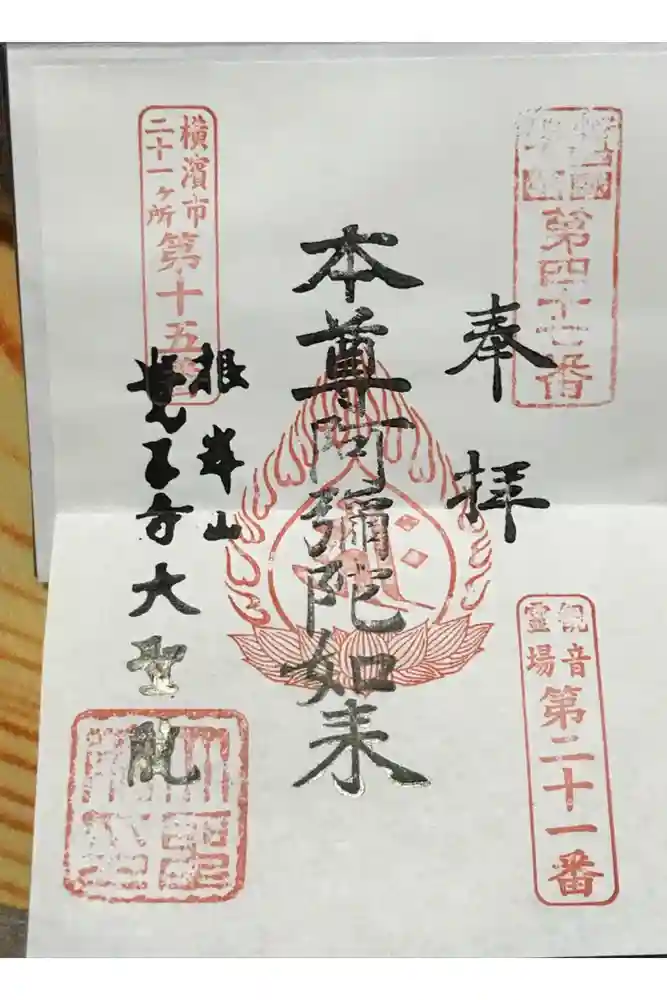 第四十七番
奉拝
観音
霊場
第二十一番
本尊阿彌陀如来
横濱市
二十一ヶ所
第十五番
根岸山
覚王寺大聖院